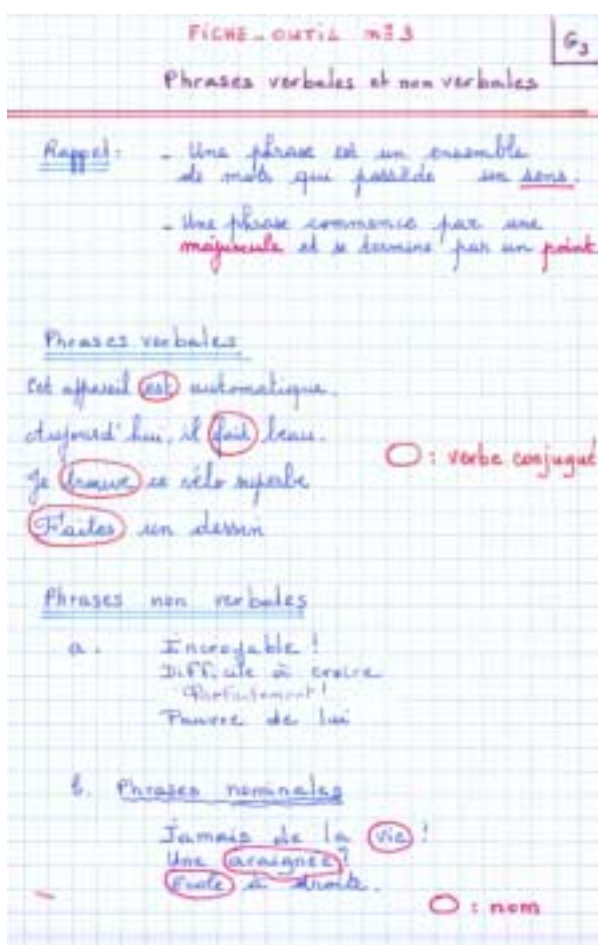 FICHE-OUTIL n°3
G3
Phrases verbales et non verbales
Rappel: - Une phrase est un ensemble
de mots qui possède un sens.
- Une phrase commence par une
majuscule et se termine par un point
Phrases verbales
Cet appareil est automatique.
Aujourd'hui, il fait beau.
O : verbe conjugué
Je trouve ce vélo superbe
Faites un dessin
Phrases non verbales
a. Incroyable !
Difficile à croire
Parfaitement !
Pauvre de lui
b. Phrases nominales
Jamais de la vie !
Une araignée ?
à droite.
O : nom